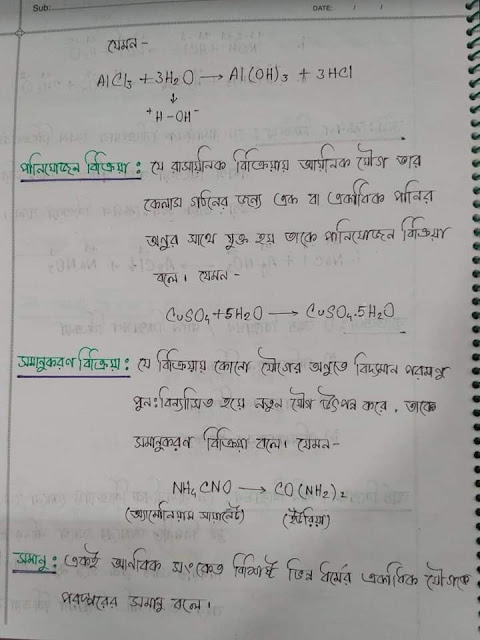 Sub:
DATE: / /
যেমন -
AlCl₃ + 3H₂O → Al(OH)₃ + 3HCl
↓
⁺H - OH⁻
পানিযোজন বিক্রিয়া : যে রাসায়নিক বিক্রিয়ায় আয়নিক যৌগ তার
কেলাস গঠনের জন্যে এক বা একাধিক পানির
অনুর সাথে যুক্ত হয় তাকে পানিযোজন বিক্রিয়া
বলে। যেমন -
CuSO₄ + 5H₂O → CuSO₄.5H₂O
সমানুকরণ বিক্রিয়া : যে বিক্রিয়ায় কোনো যৌগের অনুতে বিদ্যমান পরমাণু
পুন:বিন্যাসিত হয়ে নতুন যৌগ উৎপন্ন করে, তাকে
সমানুকরণ বিক্রিয়া বলে। যেমন -
NH₄CNO → CO(NH₂)₂
(অ্যামোনিয়াম সায়ানেট) (ইউরিয়া)
সমানু : একই আনবিক সংকেত বিশিষ্ট ভিন্ন ধর্মের একাধিক যৌগকে
পরস্পরের সমানু বলে।